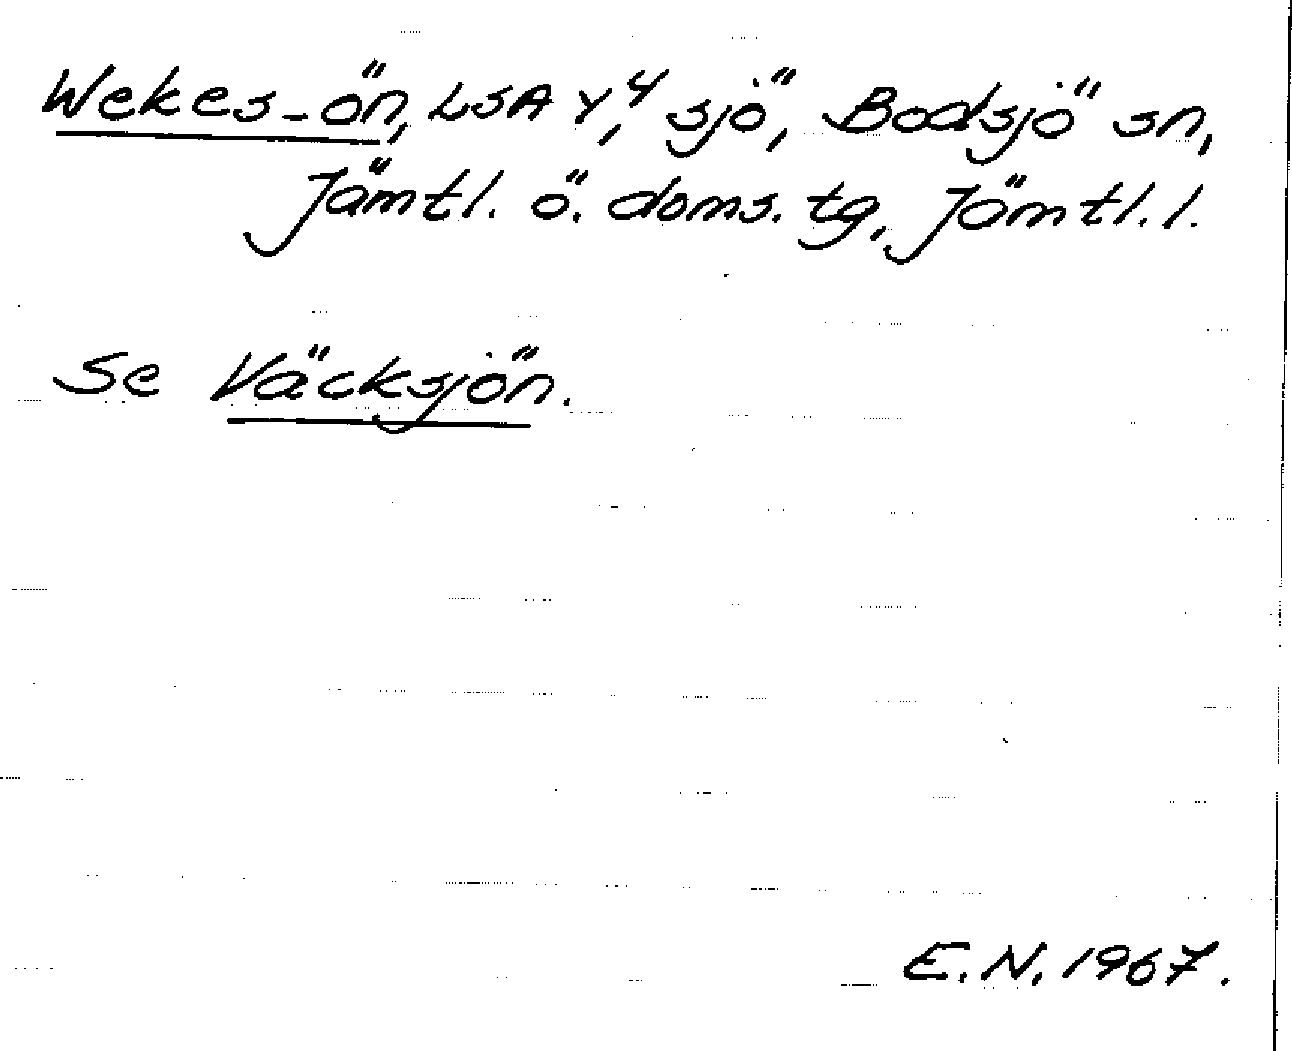 Wekes-ön, LSA Y,⁴ sjö, Bodsjö sn,
Jämtl. ö. doms. tg, Jämtl. l.
Se Väcksjön.
E.N. 1967.